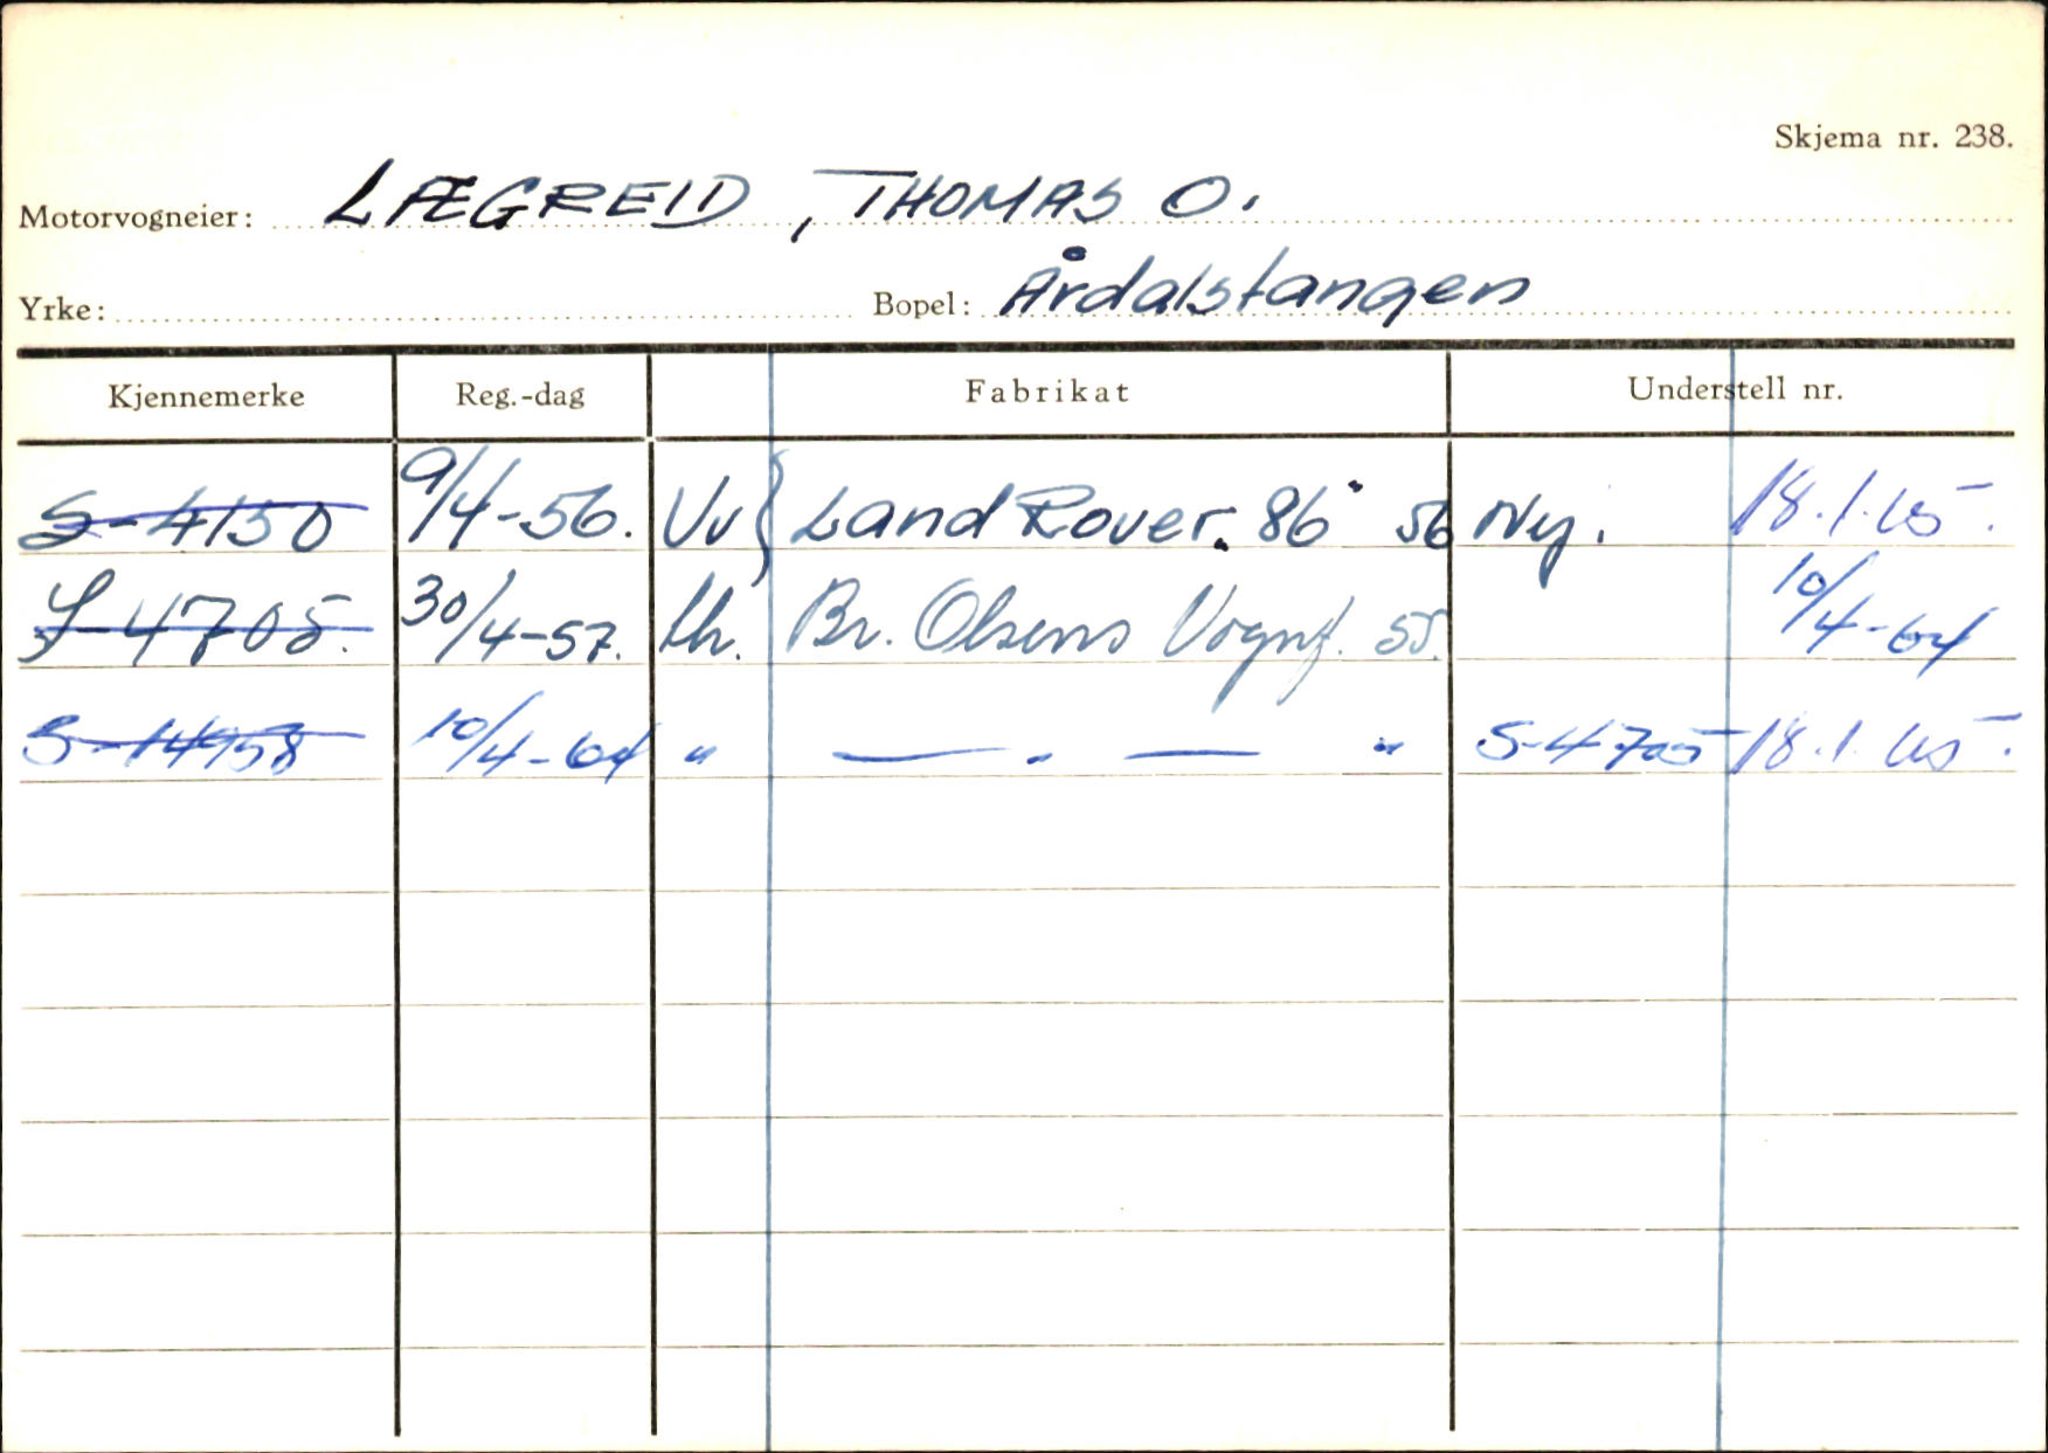 Skjema nr. 238.
Motorvogneier: LÆGREID, THOMAS O.
Yrke: Bopel: Årdalstangen
Kjennemerke Reg.-dag Fabrikat Understell nr.
S-4150 9/4-56. Vv { Land Rover. 86" 56 Ny. 18.1.65.
S-4705. 30/4-57. th. Br. Olsens Vognf. 55. 10/4-64
S-14958 10/4-64 " — " — " S-4705 18.1.65.